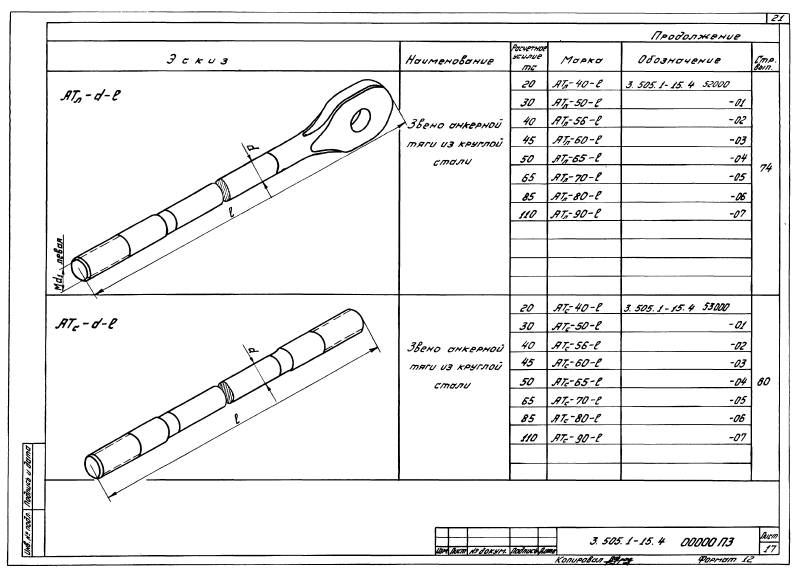 21
Продолжение
Эскиз Наименование Расчетное усилие тс Марка Обозначение Стр. вып.
АТл-d-ℓ
d
ℓ
Md1 левая
Звено анкерной
тяги из круглой
стали
20 АТл-40-ℓ 3.505.1-15.4 52000
30 АТл-50-ℓ -01
40 АТл-56-ℓ -02
45 АТл-60-ℓ -03
50 АТл-65-ℓ -04
65 АТл-70-ℓ -05
85 АТл-80-ℓ -06
110 АТл-90-ℓ -07
74
АТс-d-ℓ
d
ℓ
Звено анкерной
тяги из круглой
стали
20 АТс-40-ℓ 3.505.1-15.4 53000
30 АТс-50-ℓ -01
40 АТс-56-ℓ -02
45 АТс-60-ℓ -03
50 АТс-65-ℓ -04
65 АТс-70-ℓ -05
85 АТс-80-ℓ -06
110 АТс-90-ℓ -07
80
Инв. № подл. Подпись и дата
Изм. Лист № докум. Подпись Дата
3.505.1-15.4 00000 ПЗ
Лист
17
Копировал Формат 12